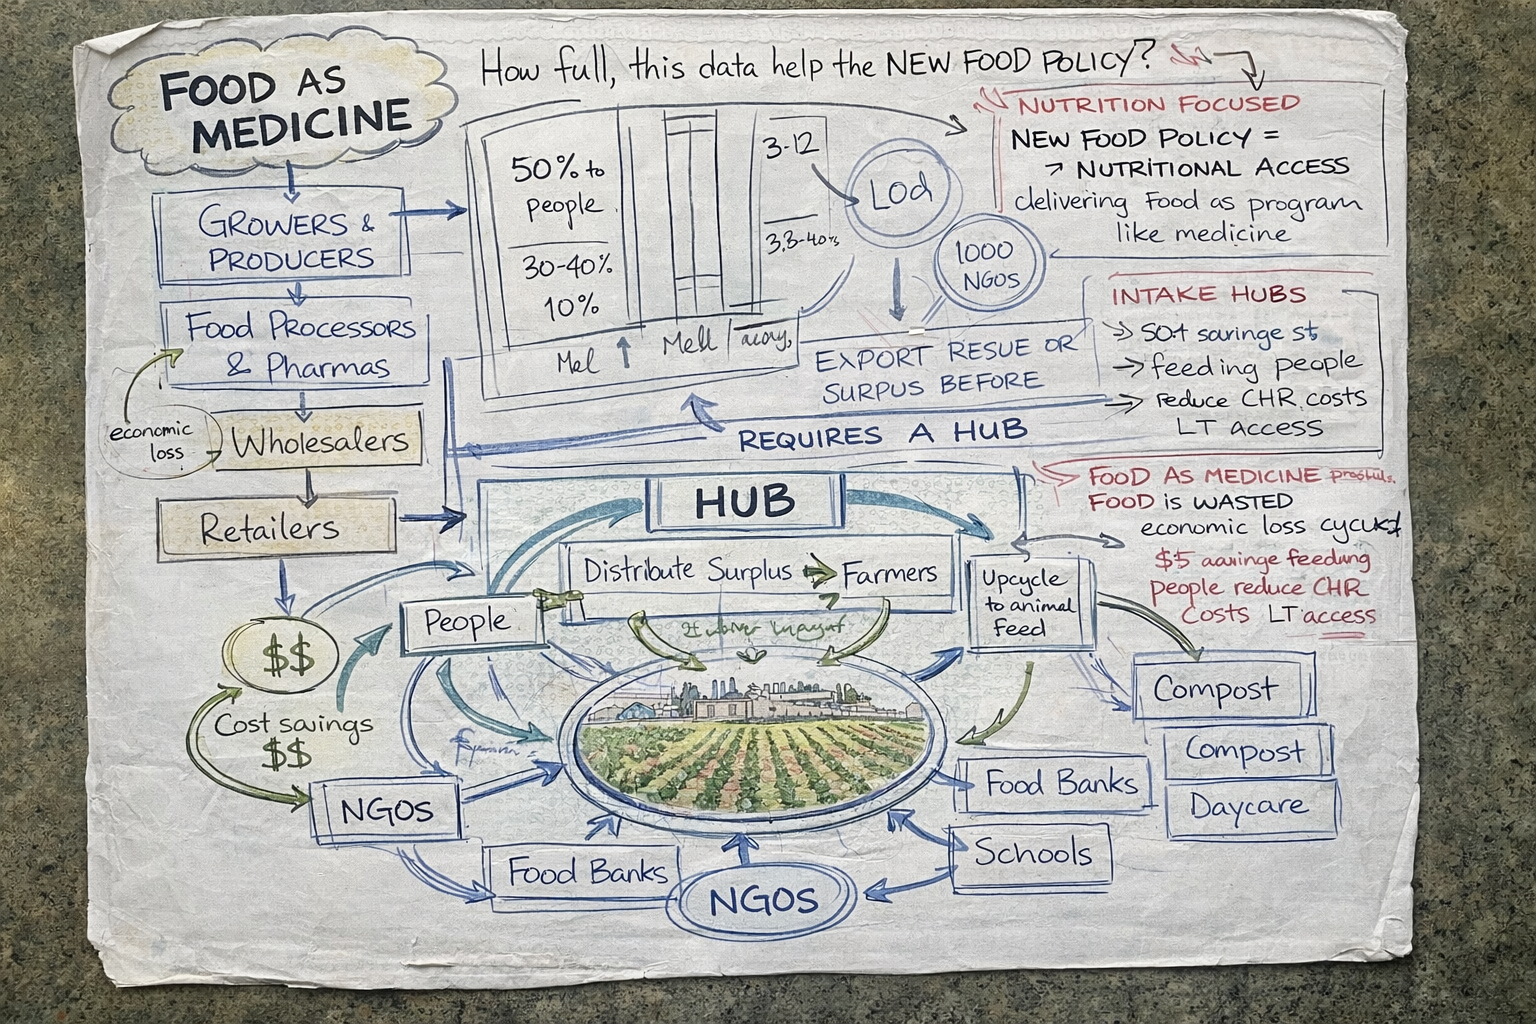 FOOD AS
MEDICINE
How full, this data help the NEW FOOD POLICY?
GROWERS &
PRODUCERS
Food Processors
& Pharmas
economic
loss
Wholesalers
Retailers
$$
Cost savings
$$
50% to
people
30-40%
10%
3-12
3,3-40%
Mel
Mell
LOd
1000
NGOS
NUTRITION FOCUSED
NEW FOOD POLICY =
→ NUTRITIONAL ACCESS
delivering Food as program
like medicine
INTAKE HUBS
→ savinge
→ feeding people
→ reduce CHR. costs
LT access
EXPORT RESUE OR
SURPUS BEFORE
REQUIRES A HUB
FOOD AS MEDICINE
FOOD IS WASTED
economic loss
$5 feeding
people reduce CHR
Costs LT access
HUB
Distribute Surplus → Farmers
People
Upcycle
to animal
feed
Compost
Compost
Daycare
NGOS
Food Banks
NGOS
Food Banks
Schools